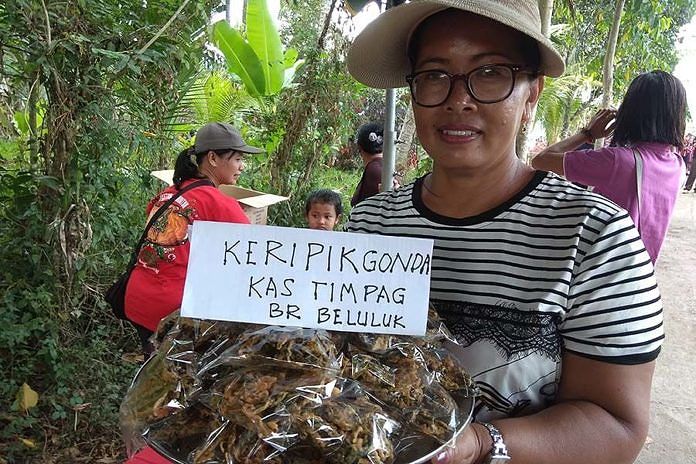 KERIPIK GONDA
KAS TIMPAG
BR BELULUK